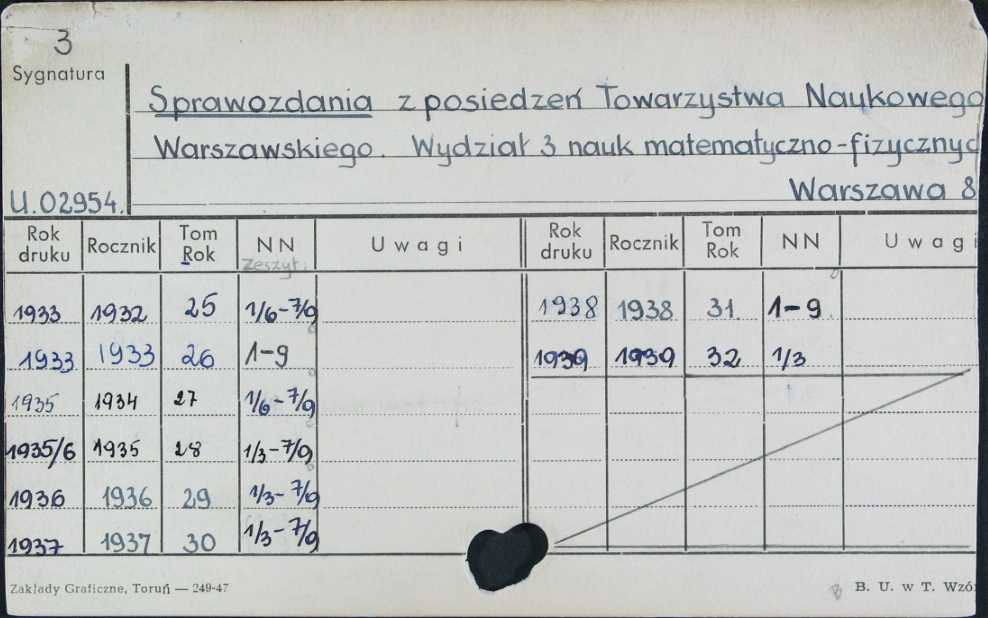 3
Sygnatura
Sprawozdania z posiedzeń Towarzystwa Naukowego
Warszawskiego. Wydział 3 nauk matematyczno-fizycznyc
U.02954. Warszawa 8
Rok druku Rocznik Tom Rok NN Zeszyt. Uwagi Rok druku Rocznik Tom Rok NN Uwagi
1933 1932 25 1/6-7/9 1938 1938 31 1-9
1933 1933 26 1-9 1939 1939 32 1/3
1935 1934 27 1/6-7/9
1935/6 1935 28 1/3-7/9
1936 1936 29 1/3-7/9
1937 1937 30 1/3-7/9
Zakłady Graficzne, Toruń — 249-47 B. U. w T. Wzó